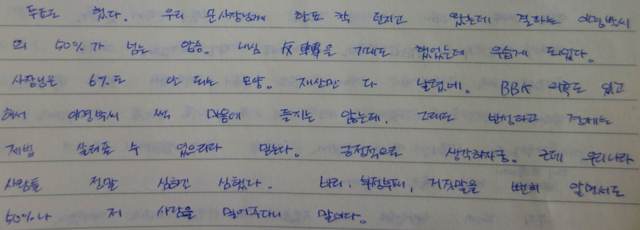 투표도 했다. 우리 문사장님에게 한표 콱 던지고 왔는데 결과는 이명박씨
의 50%가 넘는 압승. 내심 反轉을 기대도 했었는데 우습게 되었다.
사장님은 6%도 안 되는 모양. 재산만 다 날렸네. BBK 의혹도 있고
해서 이명박씨 썩 마음에 들지는 않는데, 그래도 반장하고 경제는
제법 살려줄 수 있으리라 믿는다. 긍정적으로 생각하자구. 근데 우리나라
사람들 정말 심하긴 심했다. 비리, 부정부패, 거짓말을 뻔히 알면서도
50%나 저 사람을 밀어주다니 말이다.